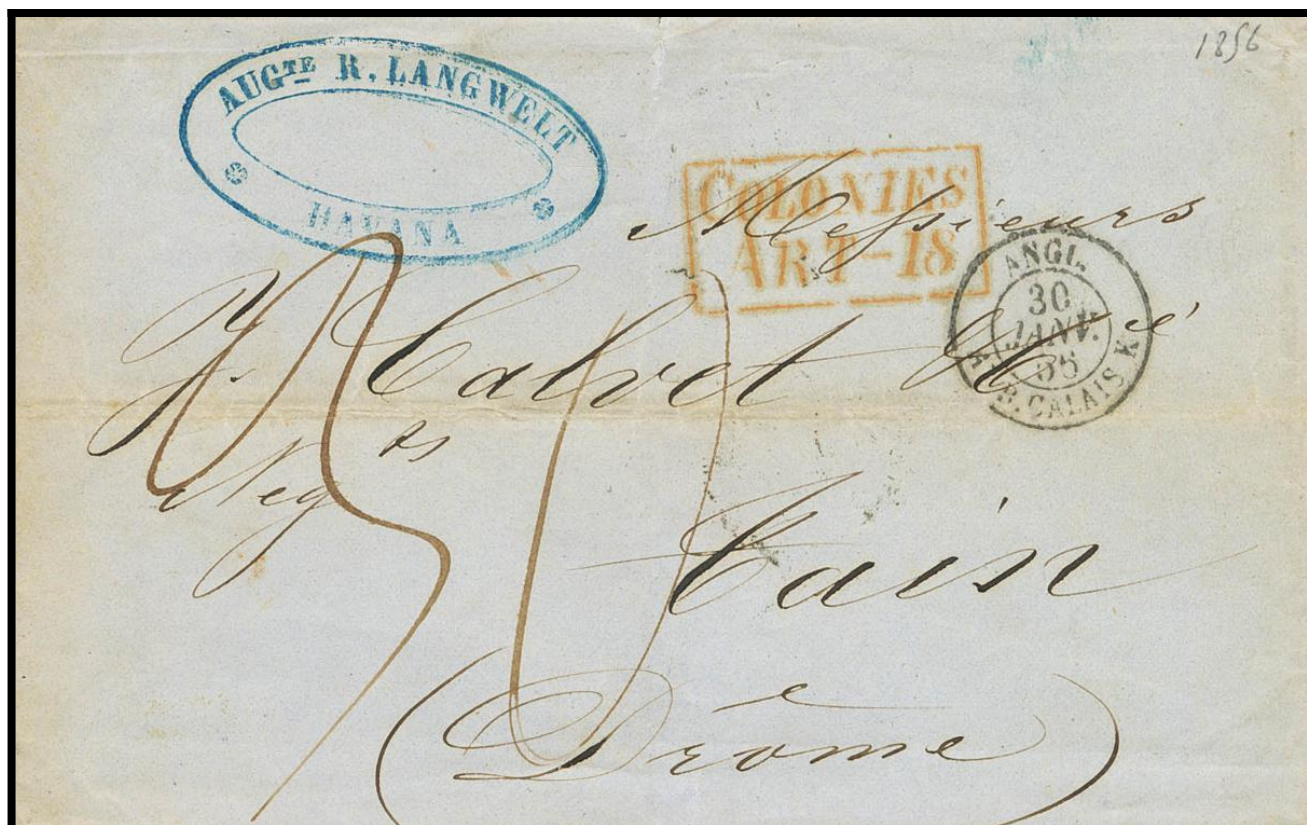 1856
AUGTE R. LANGWELT
HAVANA
COLONIES
ART-18
ANGL.
30
JANV.
CALAIS
Messieurs
Calvet
Neg ts
Tain
(Drôme)
30